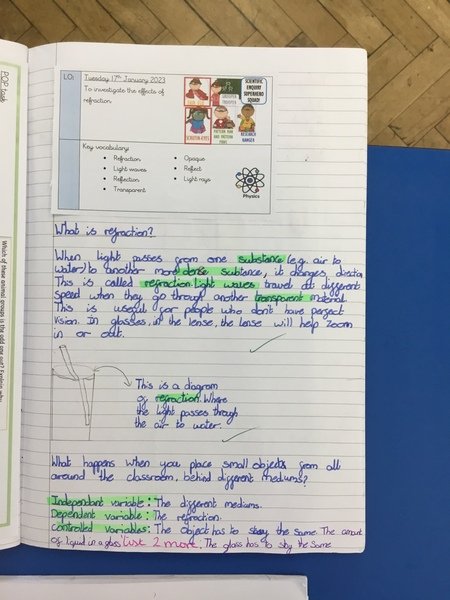 POP task
Which of these animal groups is the odd one out? Explain why
LO:
Tuesday 17th January 2023
To investigate the effects of
refraction.
SCIENTIFIC
ENQUIRY
SUPERHERO
SQUAD!
RESEARCH
RANGER
Key vocabulary:
Refraction
Light waves
Reflection
Transparent
Opaque
Reflect
Light rays
Physics
What is refraction?
When light passes from one substance (e.g. air to
water) to another more dense subtance, it changes direction
This is called refraction. light waves travel at different
speed when they go through another transparent material
This is useful for people who don't have perfect
vision. In glasses, in the lense, the lense will help zoom
in or out.
This is a diagram
of refraction. Where
the light passes through
the air to water.
What happens when you place small objects from all
around the classroom, behind different mediums?
Independant variable: The different mediums.
Dependent variable: The refraction.
Controlled variables: The object has to stay the same. The amount
of liquid in a glass List 2 more. The glass has to stay the same